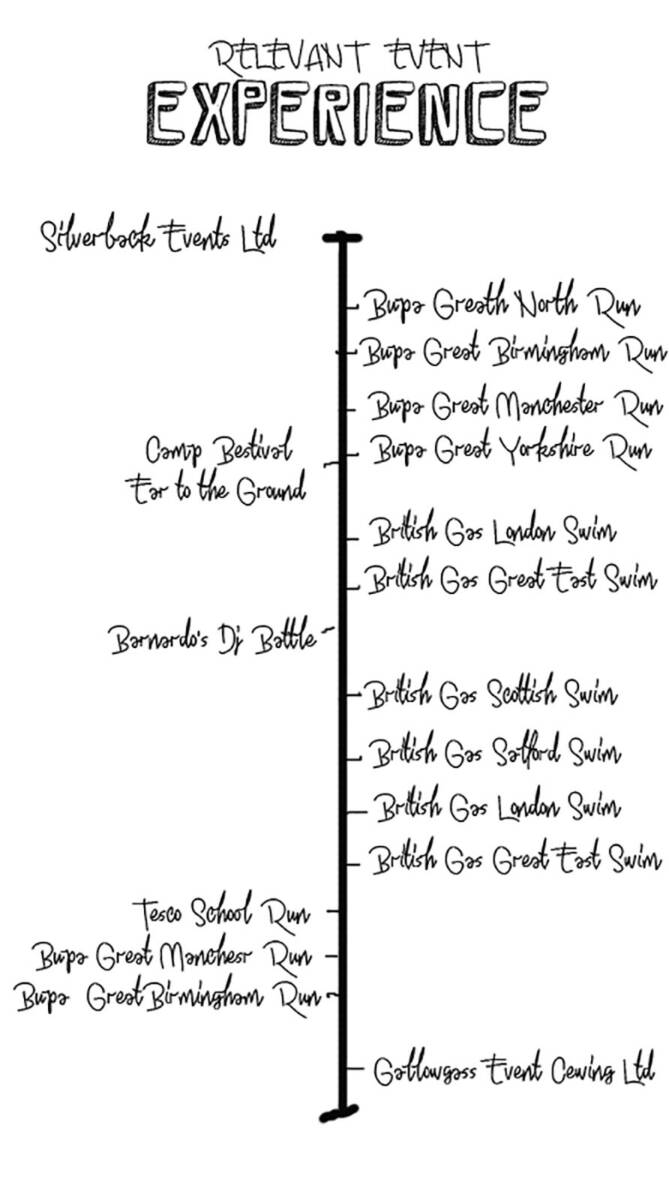 RELEVANT EVENT
EXPERIENCE
Silverback Events Ltd
Bupa Greath North Run
Bupa Great Birmingham Run
Bupa Great Manchester Run
Camp Bestival
Bupa Great Yorkshire Run
Ear to the Ground
British Gas London Swim
British Gas Great East Swim
Barnardo's Dj Battle
British Gas Scottish Swim
British Gas Salford Swim
British Gas London Swim
British Gas Great East Swim
Tesco School Run
Bupa Great Manchesr Run
Bupa GreatBirmingham Run
Gallowgass Event Cewing Ltd